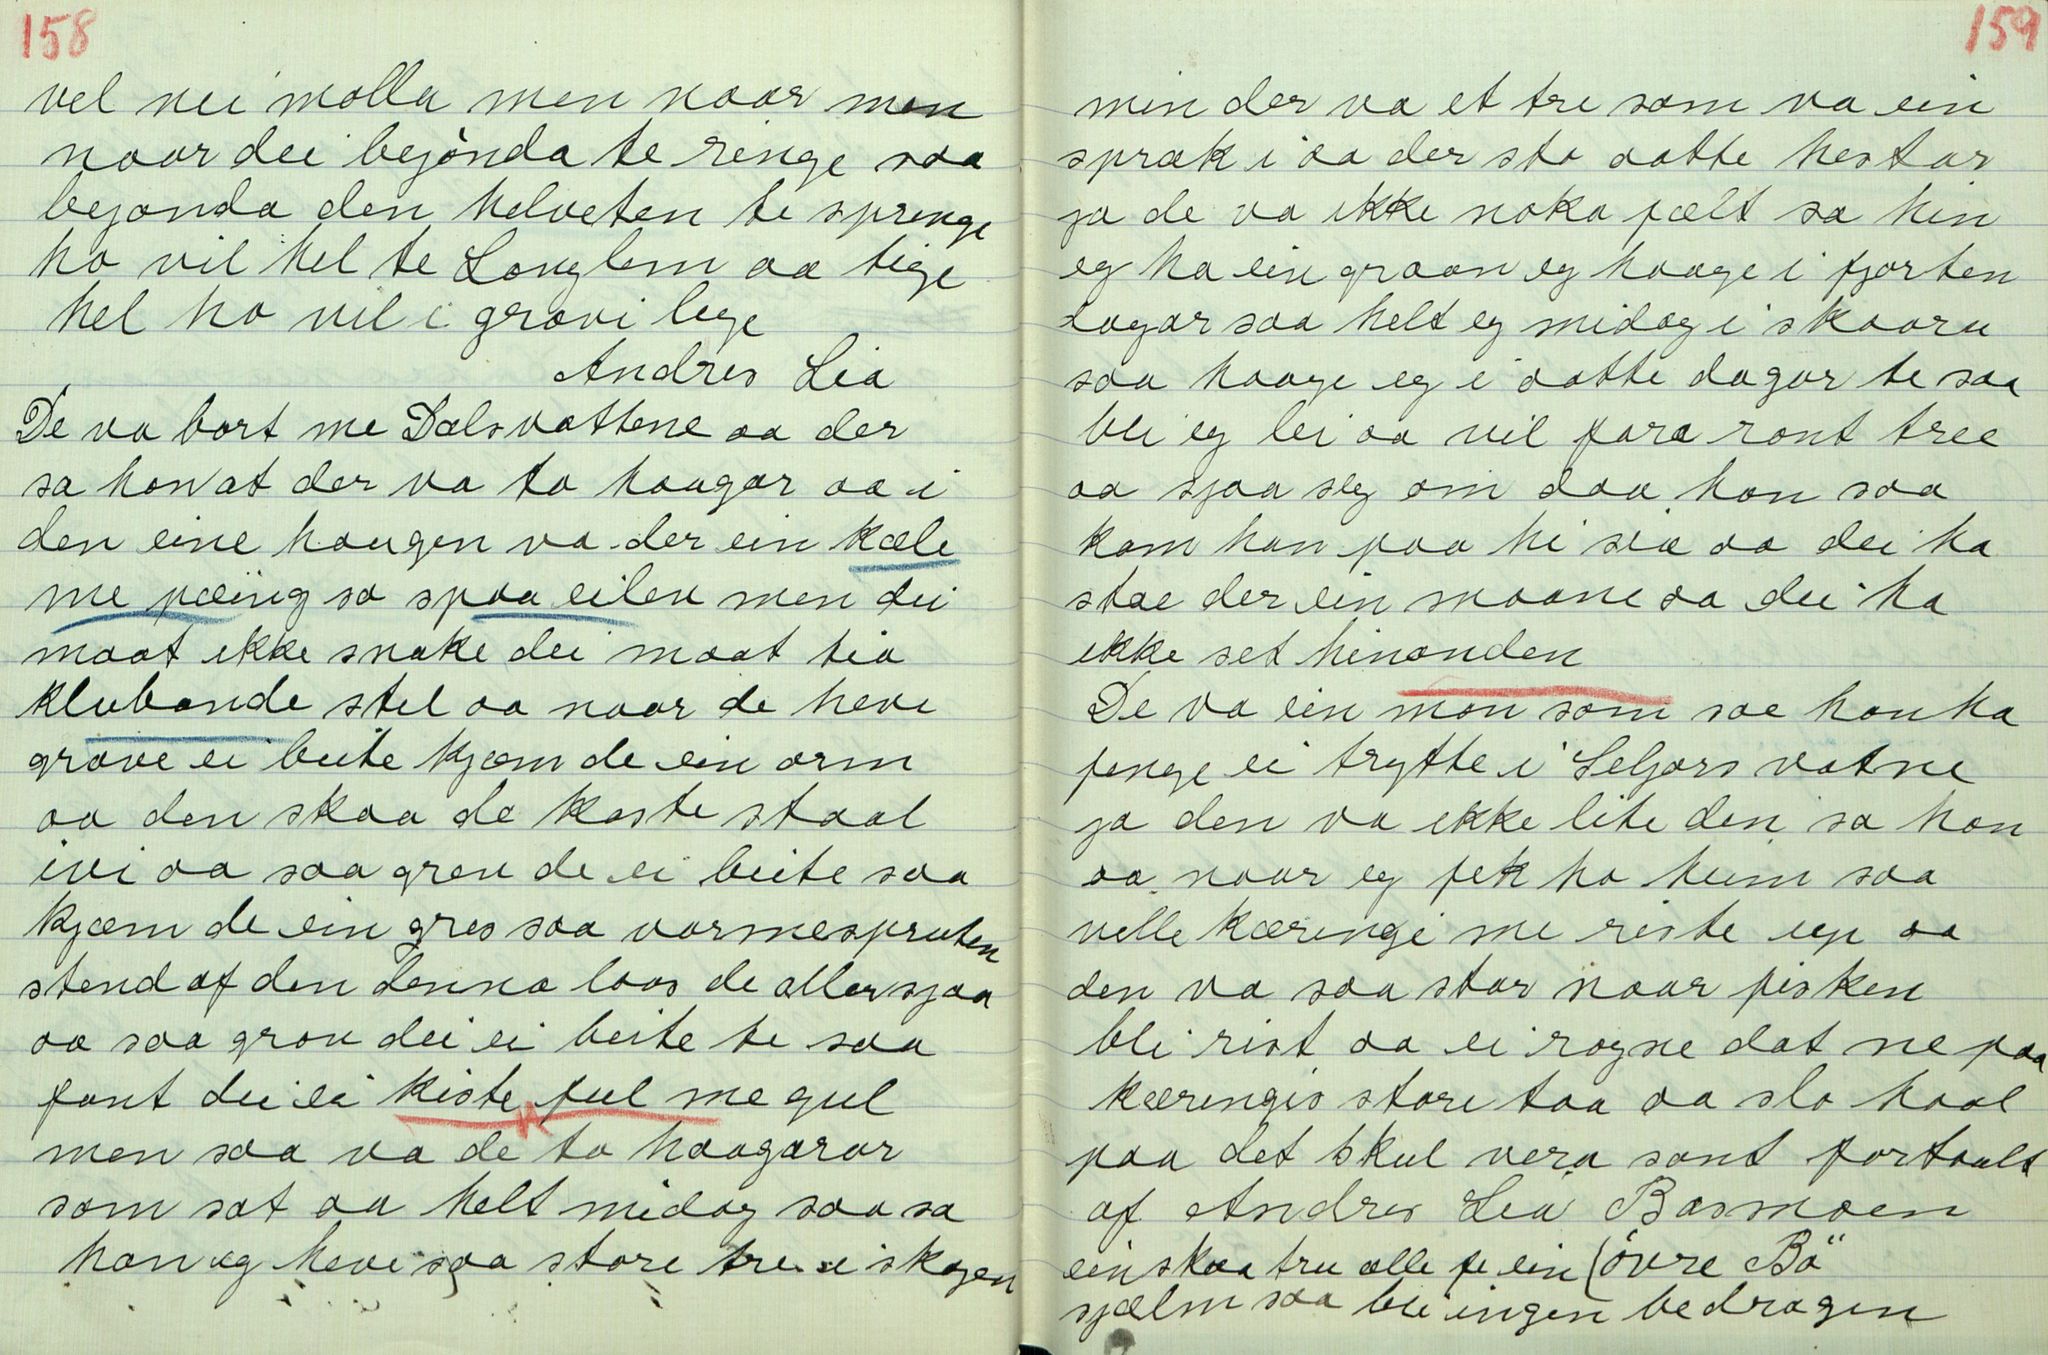 158
vel nei molla men naar men
naar dei bejònda te ringe saa
bejonda den helveten te springe
ho vil hel te Longlem aa tige
hel ho vil i gravi lege
Andres Lia
De va bort me Dælsvattene aa der
sa hon at der va to haugar aa i
den eine haugen va der ein kæle
me pæing so spaa eilen men dei
maat ikke snake dei maat tia
klubande stel aa naar de heve
grave ei beite kjæm de ein orm
aa den skaa de kaste staal
ivi aa saa grev de ei beite saa
kjæm de ein gres saa varmespruten
stend af den denna laas de aller sjaa
aa saa grov dei ei beite te saa
fant dei ei kiste ful me gul
men saa va de to haagarar
som sat aa helt midag saa sa
han eg heve saa store tre i skogen
159
min der va et tre som va ein
spræk i aa der sto aatte hestar
ja de va ikke noka fælt sa hin
eg ha ein graan eg haage i fjorten
dagar saa helt eg midag i skaaru
saa haage eg i aatte dagar te saa
bli eg lei aa vil fara ront tree
aa sjaa seg om daa han saa
kom han paa hi siæ aa dei ha
stae der ein maane aa dei ha
ikke set hinanden
De va ein mon som sae han ha
fenge ei trytte i Seljors vatne
ja den va ikke lite den sa han
aa naar eg fek ho heim saa
velle kæringe me riste up aa
den va saa stor naar fisken
bli rist aa ei rogne dat ne paa
kæringis store taa aa slo haal
paa det skul vera sant fortaalt
af Andres Lia Basmoen
ein skaa tru alle fe ein (òvre Bö
sjælm saa bli ingen bedragen